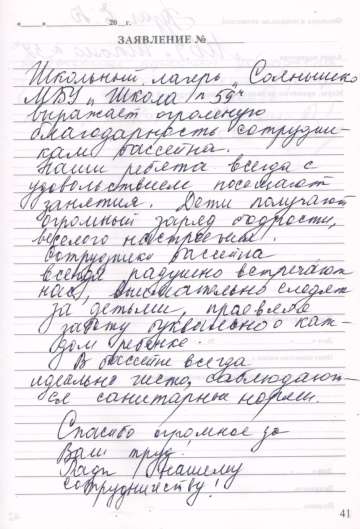 «___»__________20__г.
ЗАЯВЛЕНИЕ №
Школьный лагерь „Солнышко"
МБУ „Школа № 59"
выражает огромную
благодарность сотрудни-
кам бассейна.
Наши ребята всегда с
удовольствием посещают
занятия. Дети получают
огромный заряд бодрости,
веселого настроения.
Сотрудники бассейна
всегда радушно встречают
нас, внимательно следят
за детьми, проявляя
заботу буквально о каж-
дом ребенке.
В бассейне всегда
идеально чисто, соблюдают-
ся санитарные нормы.
Спасибо огромное за
Ваш труд.
Рады нашему
сотрудничеству!
41